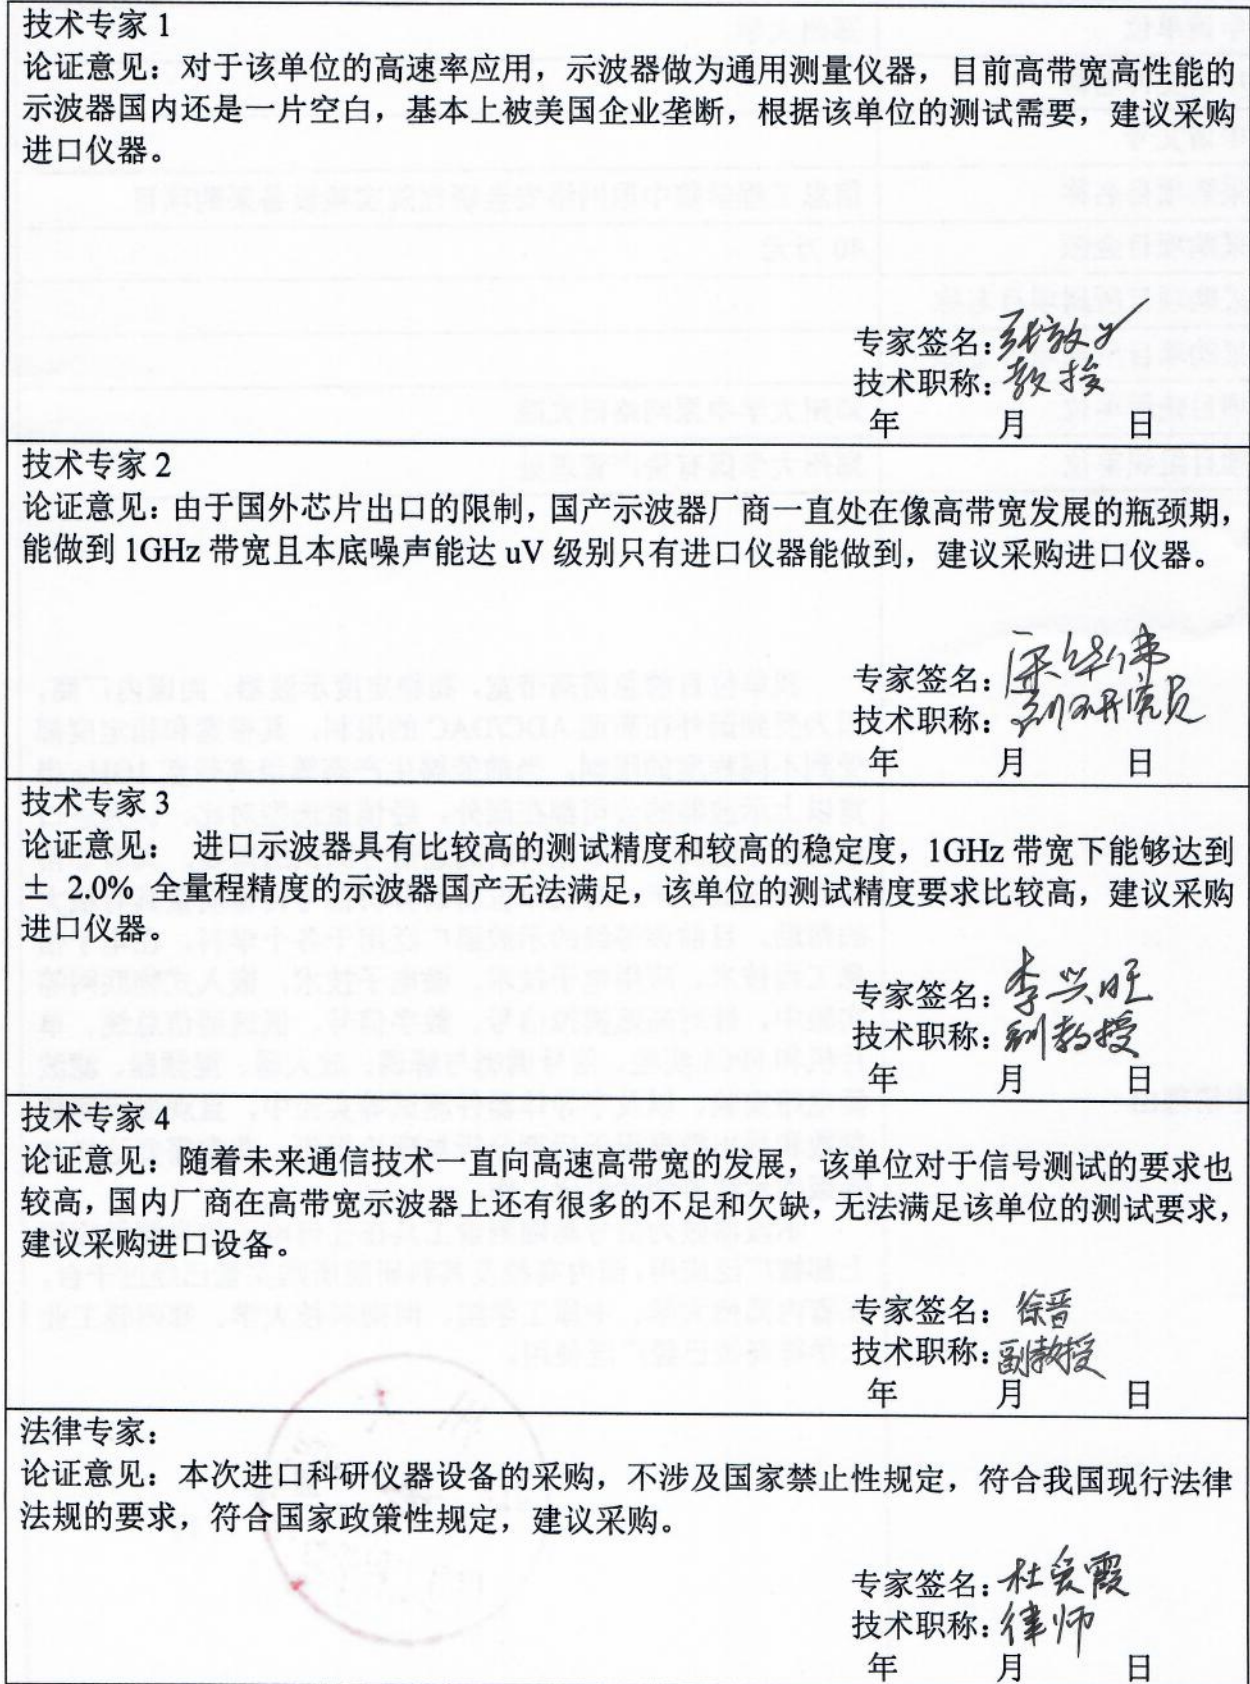 技术专家 1
论证意见：对于该单位的高速率应用，示波器做为通用测量仪器，目前高带宽高性能的
示波器国内还是一片空白，基本上被美国企业垄断，根据该单位的测试需要，建议采购
进口仪器。
专家签名：
技术职称：教授
年 月 日
技术专家 2
论证意见：由于国外芯片出口的限制，国产示波器厂商一直处在像高带宽发展的瓶颈期，
能做到 1GHz 带宽且本底噪声能达 uV 级别只有进口仪器能做到，建议采购进口仪器。
专家签名：宋华伟
技术职称：副研究员
年 月 日
技术专家 3
论证意见： 进口示波器具有比较高的测试精度和较高的稳定度，1GHz 带宽下能够达到
± 2.0% 全量程精度的示波器国产无法满足，该单位的测试精度要求比较高，建议采购
进口仪器。
专家签名：李兴旺
技术职称：副教授
年 月 日
技术专家 4
论证意见：随着未来通信技术一直向高速高带宽的发展，该单位对于信号测试的要求也
较高，国内厂商在高带宽示波器上还有很多的不足和欠缺，无法满足该单位的测试要求，
建议采购进口设备。
专家签名：徐晋
技术职称：副教授
年 月 日
法律专家：
论证意见：本次进口科研仪器设备的采购，不涉及国家禁止性规定，符合我国现行法律
法规的要求，符合国家政策性规定，建议采购。
专家签名：杜会霞
技术职称：律师
年 月 日